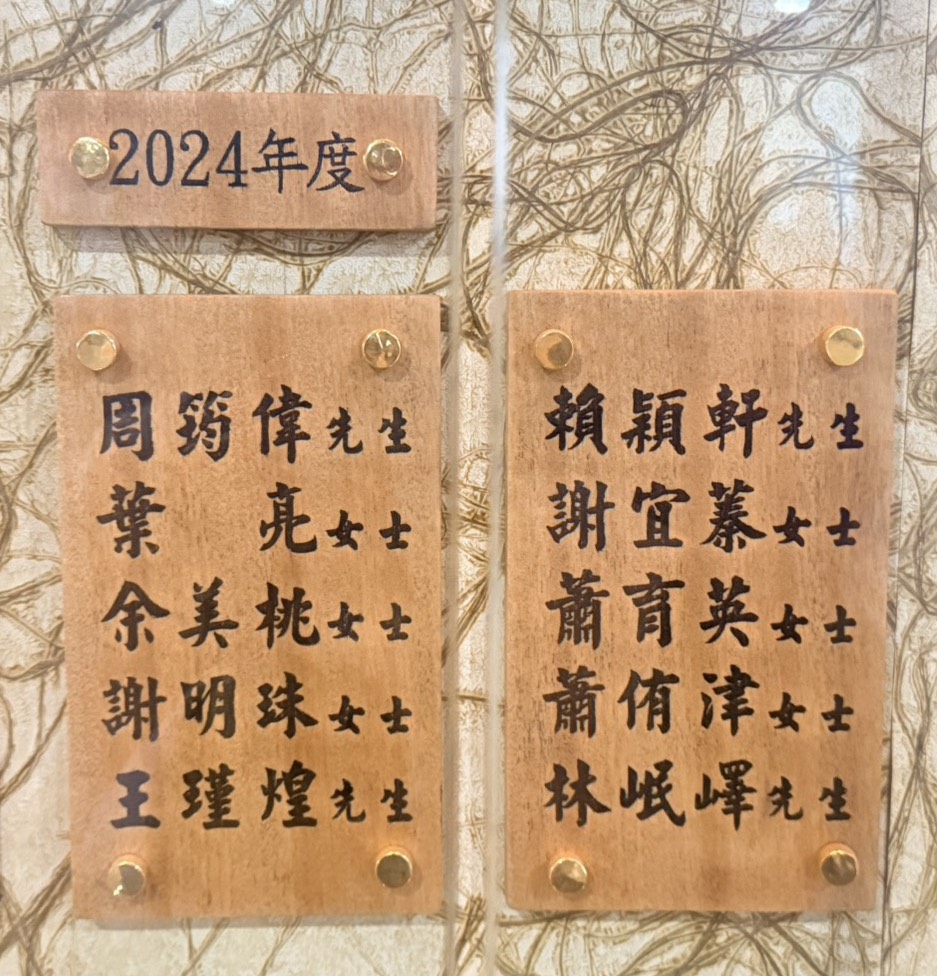 2024年度
周筠偉先生
葉 亮女士
余美桃女士
謝明珠女士
王瑾煌先生
賴穎軒先生
謝宜蓁女士
蕭育英女士
蕭侑津女士
林岷嶧先生